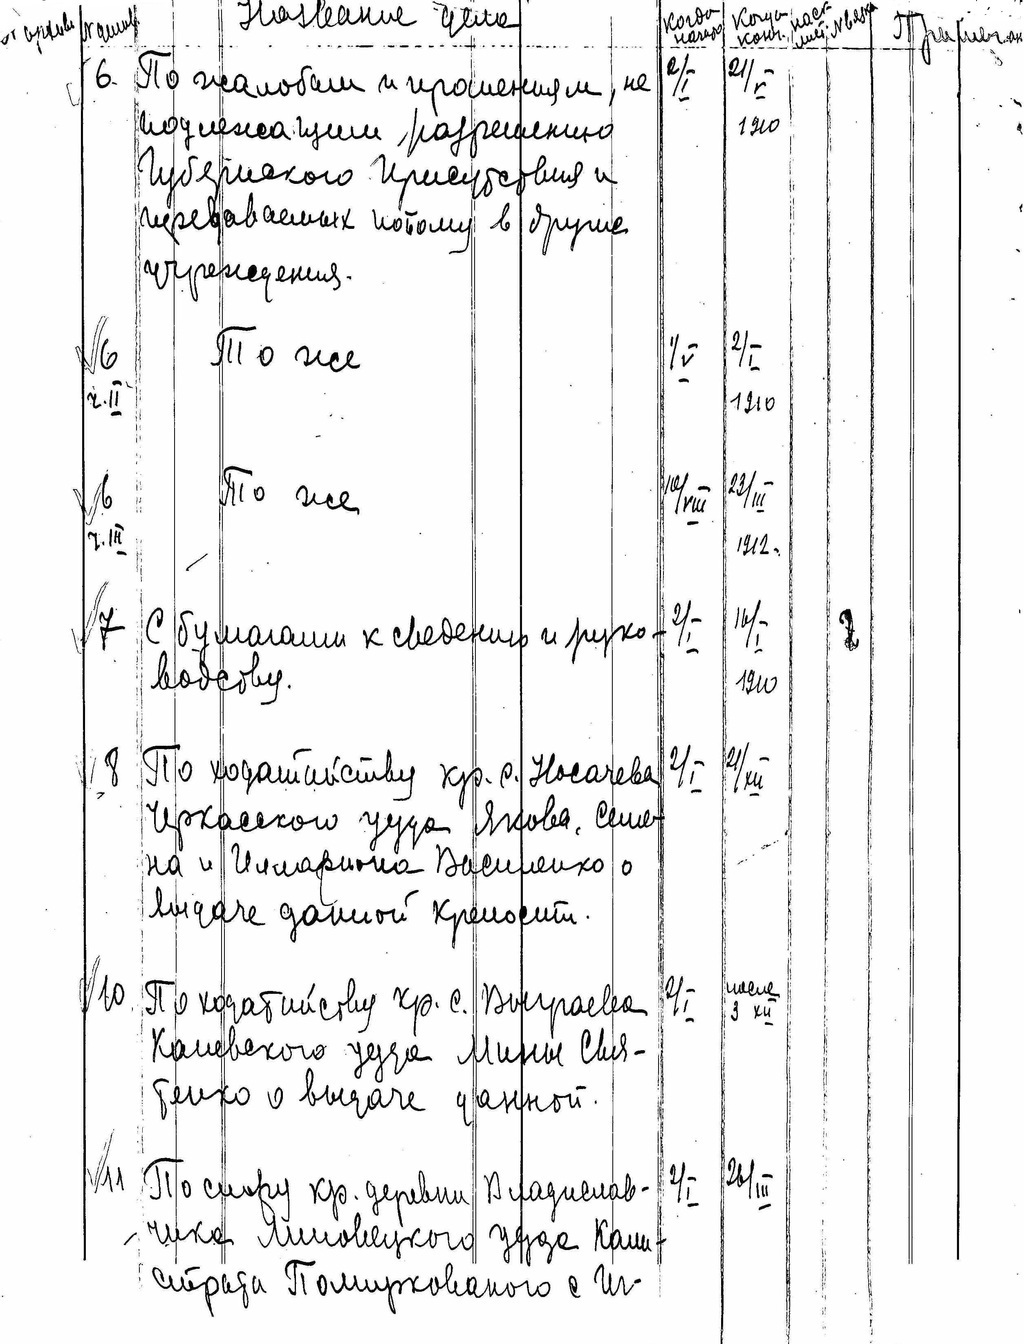 Название дела Когда начато Когда конч. № связки Примечан
6. По жалобам и прошениям, не 2/I 21/V
подлежащим разрешению 1910
Губернского Присутствия и
передаваемых потому в другие
учреждения.
6 То же 1/V 2/I
ч. II 1910
6 То же 10/VIII 23/III
ч. III 1912.
7 С бумагами к сведению и руко- 2/I 16/I 2
водству. 1910
8 По ходатайству кр. с. Носачева 2/I 21/XII
Черкасского уезда Якова, Семе-
на и Иллариона Василенко о
выдаче данной крепости.
10. По ходатайству кр. с. Выграева 2/I после
Каневского уезда Мины Свя- 3 XII
тенко о выдаче данной.
11 По спору кр. деревни Владислав- 2/I 26/III
чика Липовецкого уезда Кали-
страта Помиркованого с Иг-